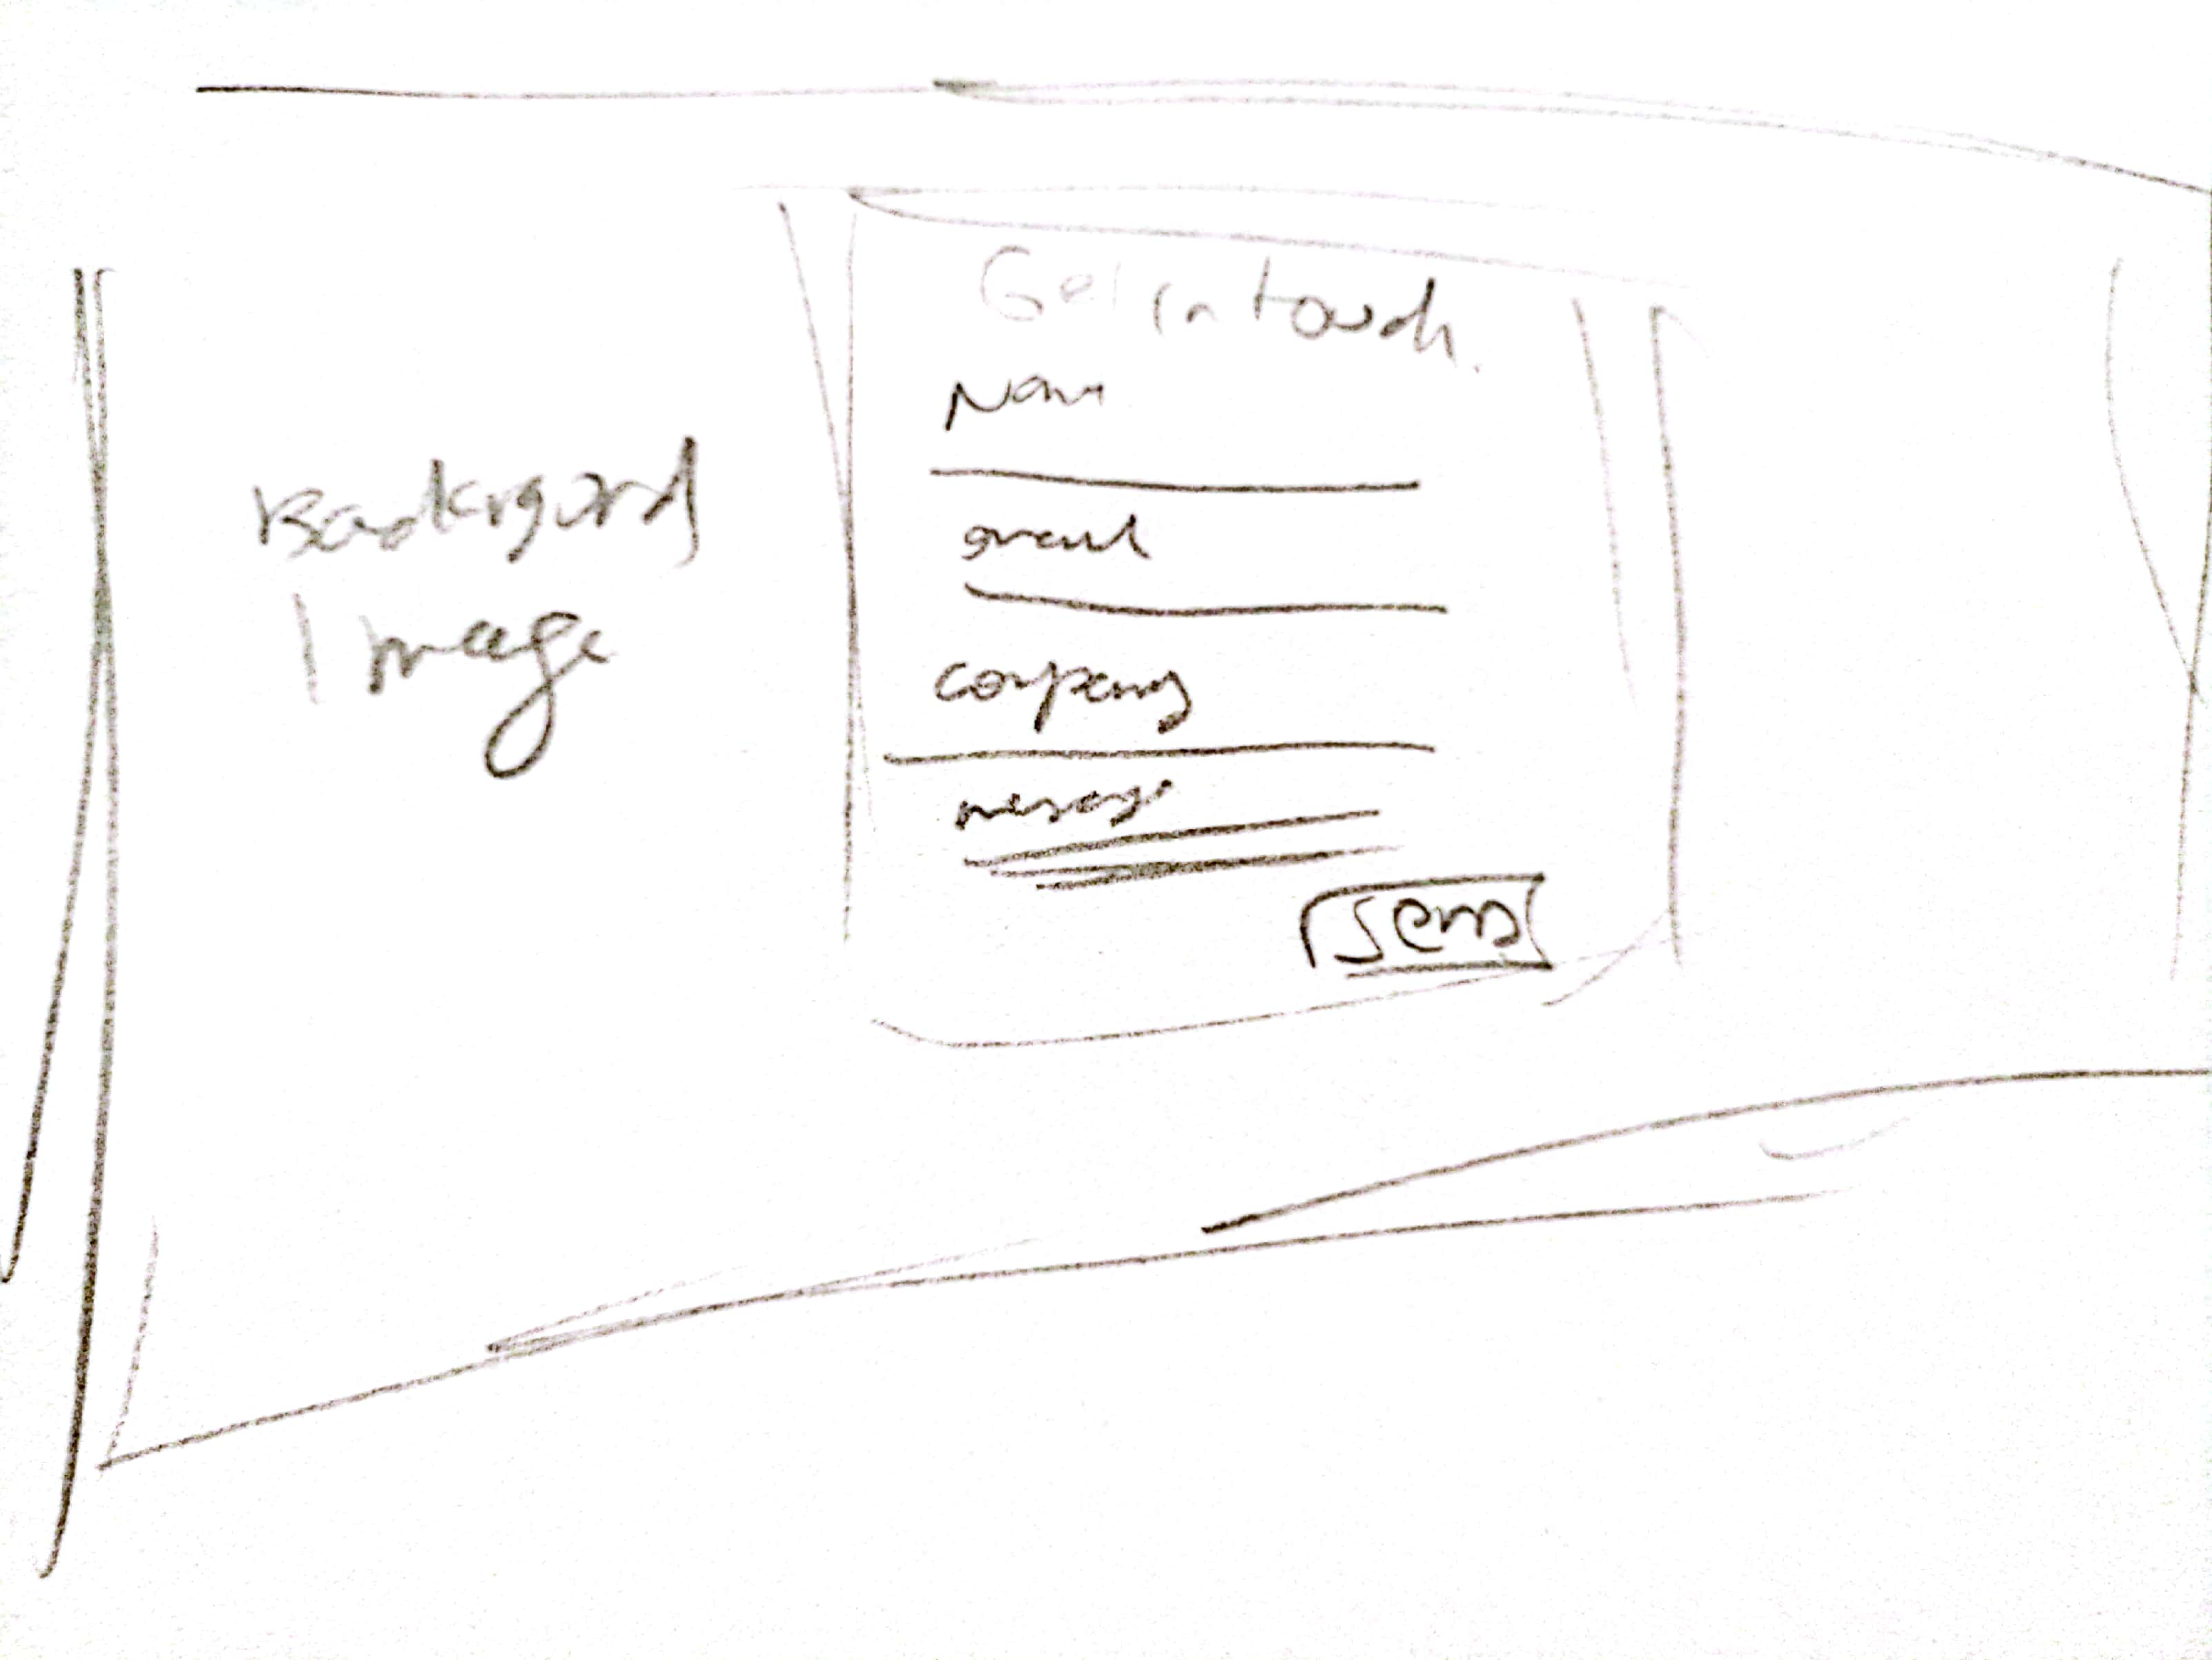 Background
Image
Get in touch.
Name
email
company
message
Send